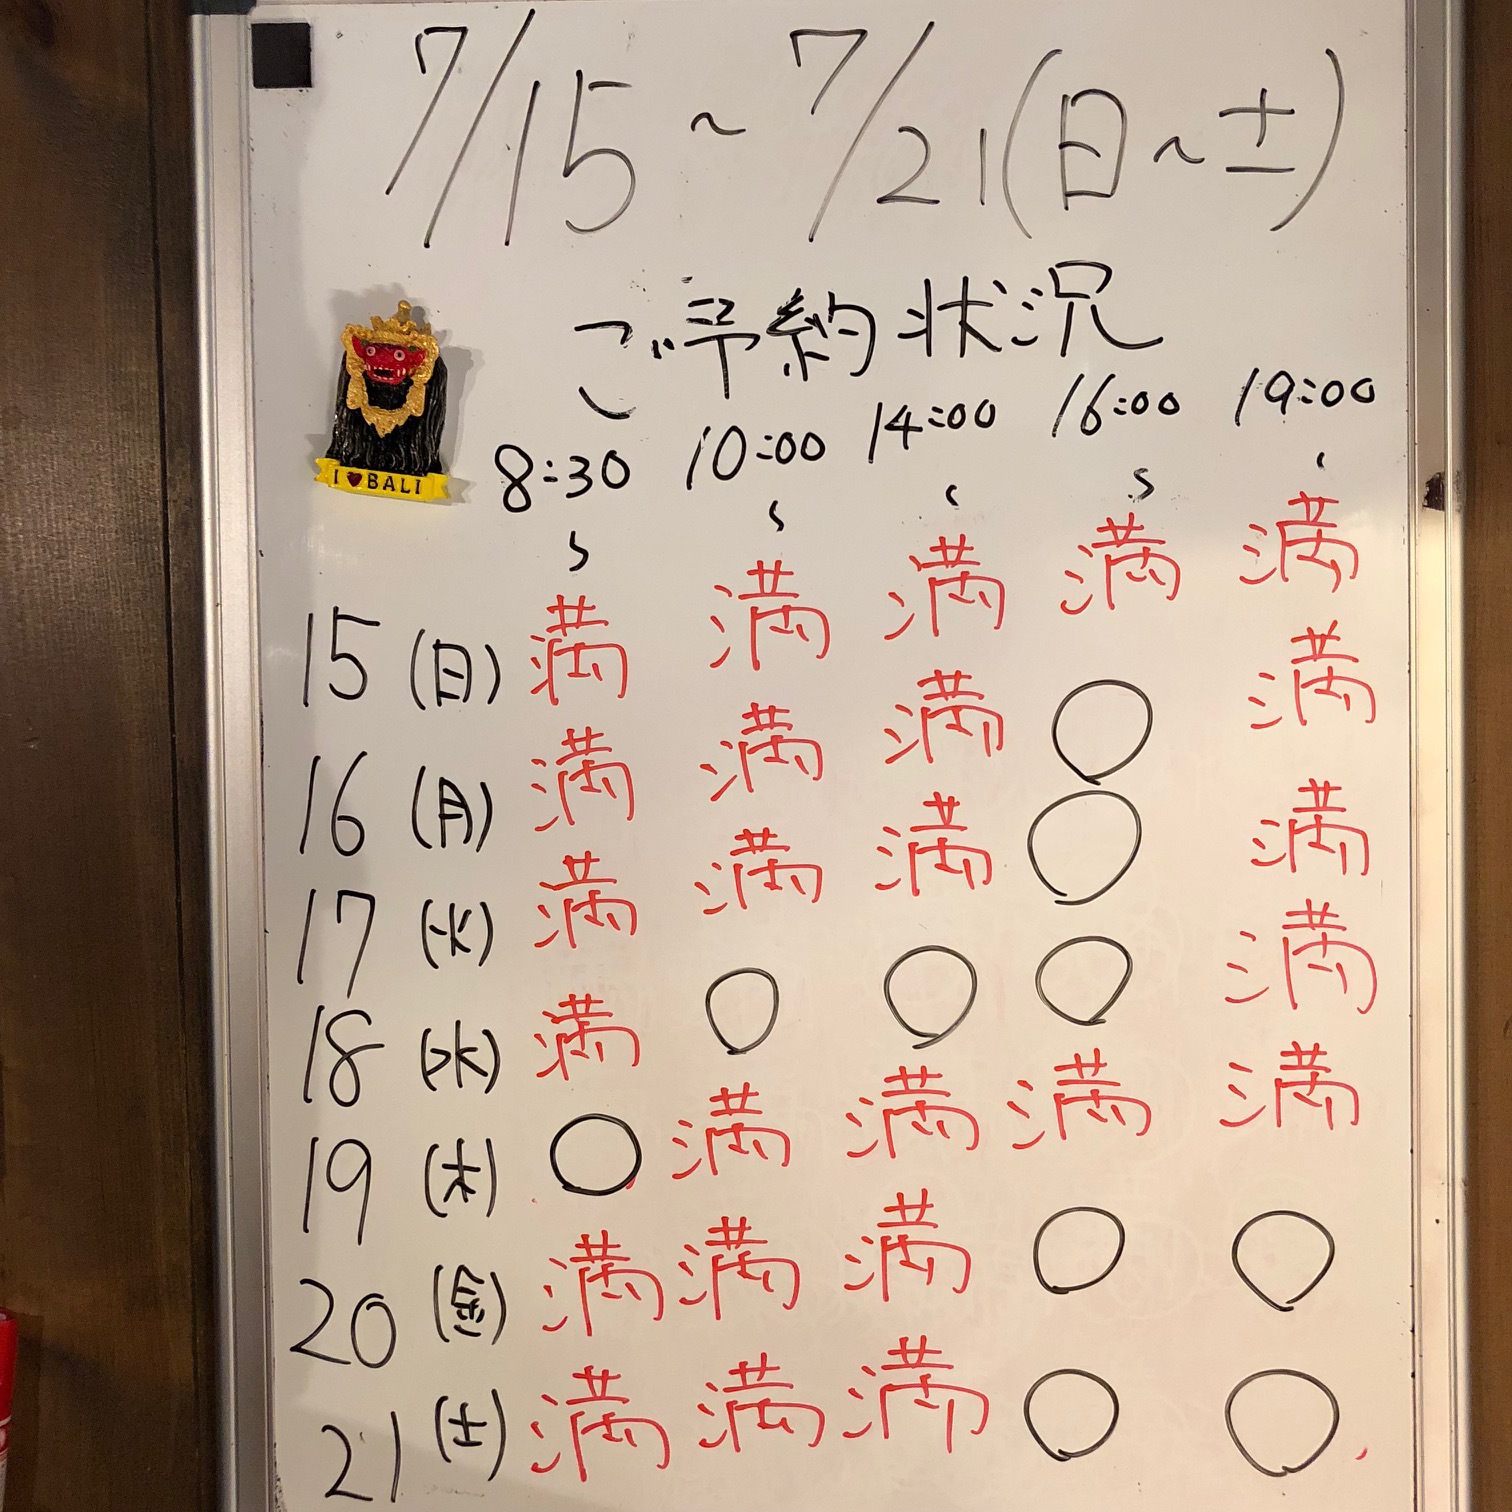 7/15~7/21(日~土)
ご予約状況
8:30~ 10:00~ 14:00~ 16:00~ 19:00~
I ♥ BALI
15(日) 満 満 満 満 満
16(月) 満 満 満 ○ 満
17(火) 満 満 満 ○ 満
18(水) 満 ○ ○ ○ 満
19(木) ○ 満 満 満 満
20(金) 満 満 満 ○ ○
21(土) 満 満 満 ○ ○